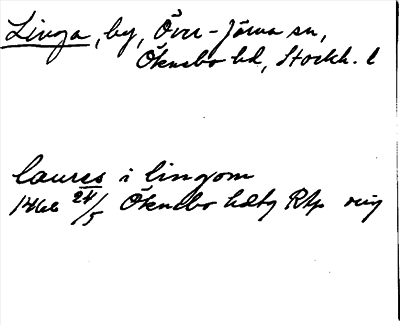 Linga, by, Över-Järna sn,
Öknebo hd, Stockh. l
laures i lingom
1466 24/5 Öknebo hdtg Rkp